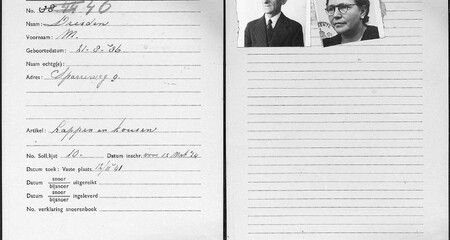 No.
Naam: Dresden
Voornaam: M.
Geboortedatum: 21-8-'86
Naam echtg(e):
Adres: Sparrenweg 9.
Artikel: Lappen en kousen
No. Soll.lijst 10. Datum inschr. voor 12 Mrt '34
Datum toek: Vaste plaats.
Datum snoer bijsnoer uitgereikt
Datum snoer bijsnoer ingeleverd
No. verklaring snoerenboek